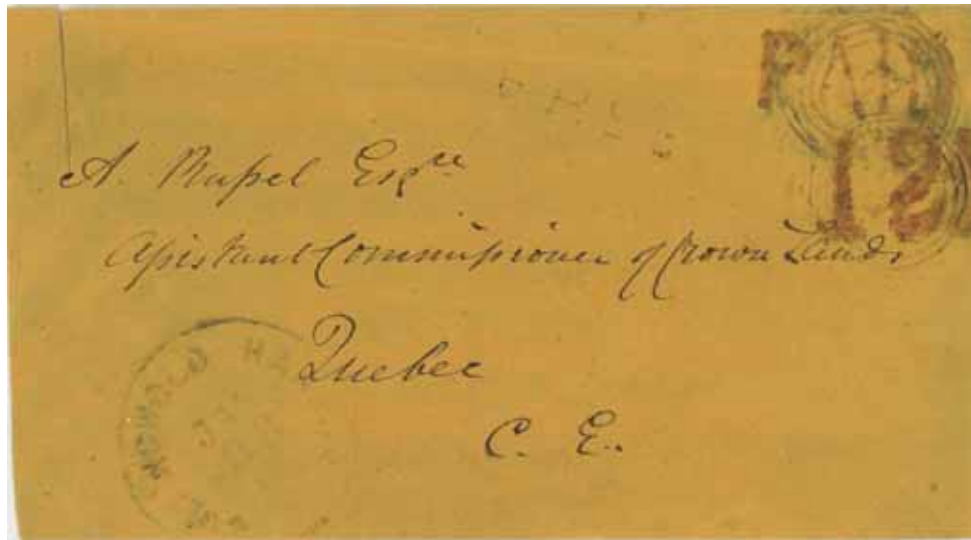 PAID
12
A. Russel Esqre
Assistant Commissioner of Crown Lands
Quebec
C. E.